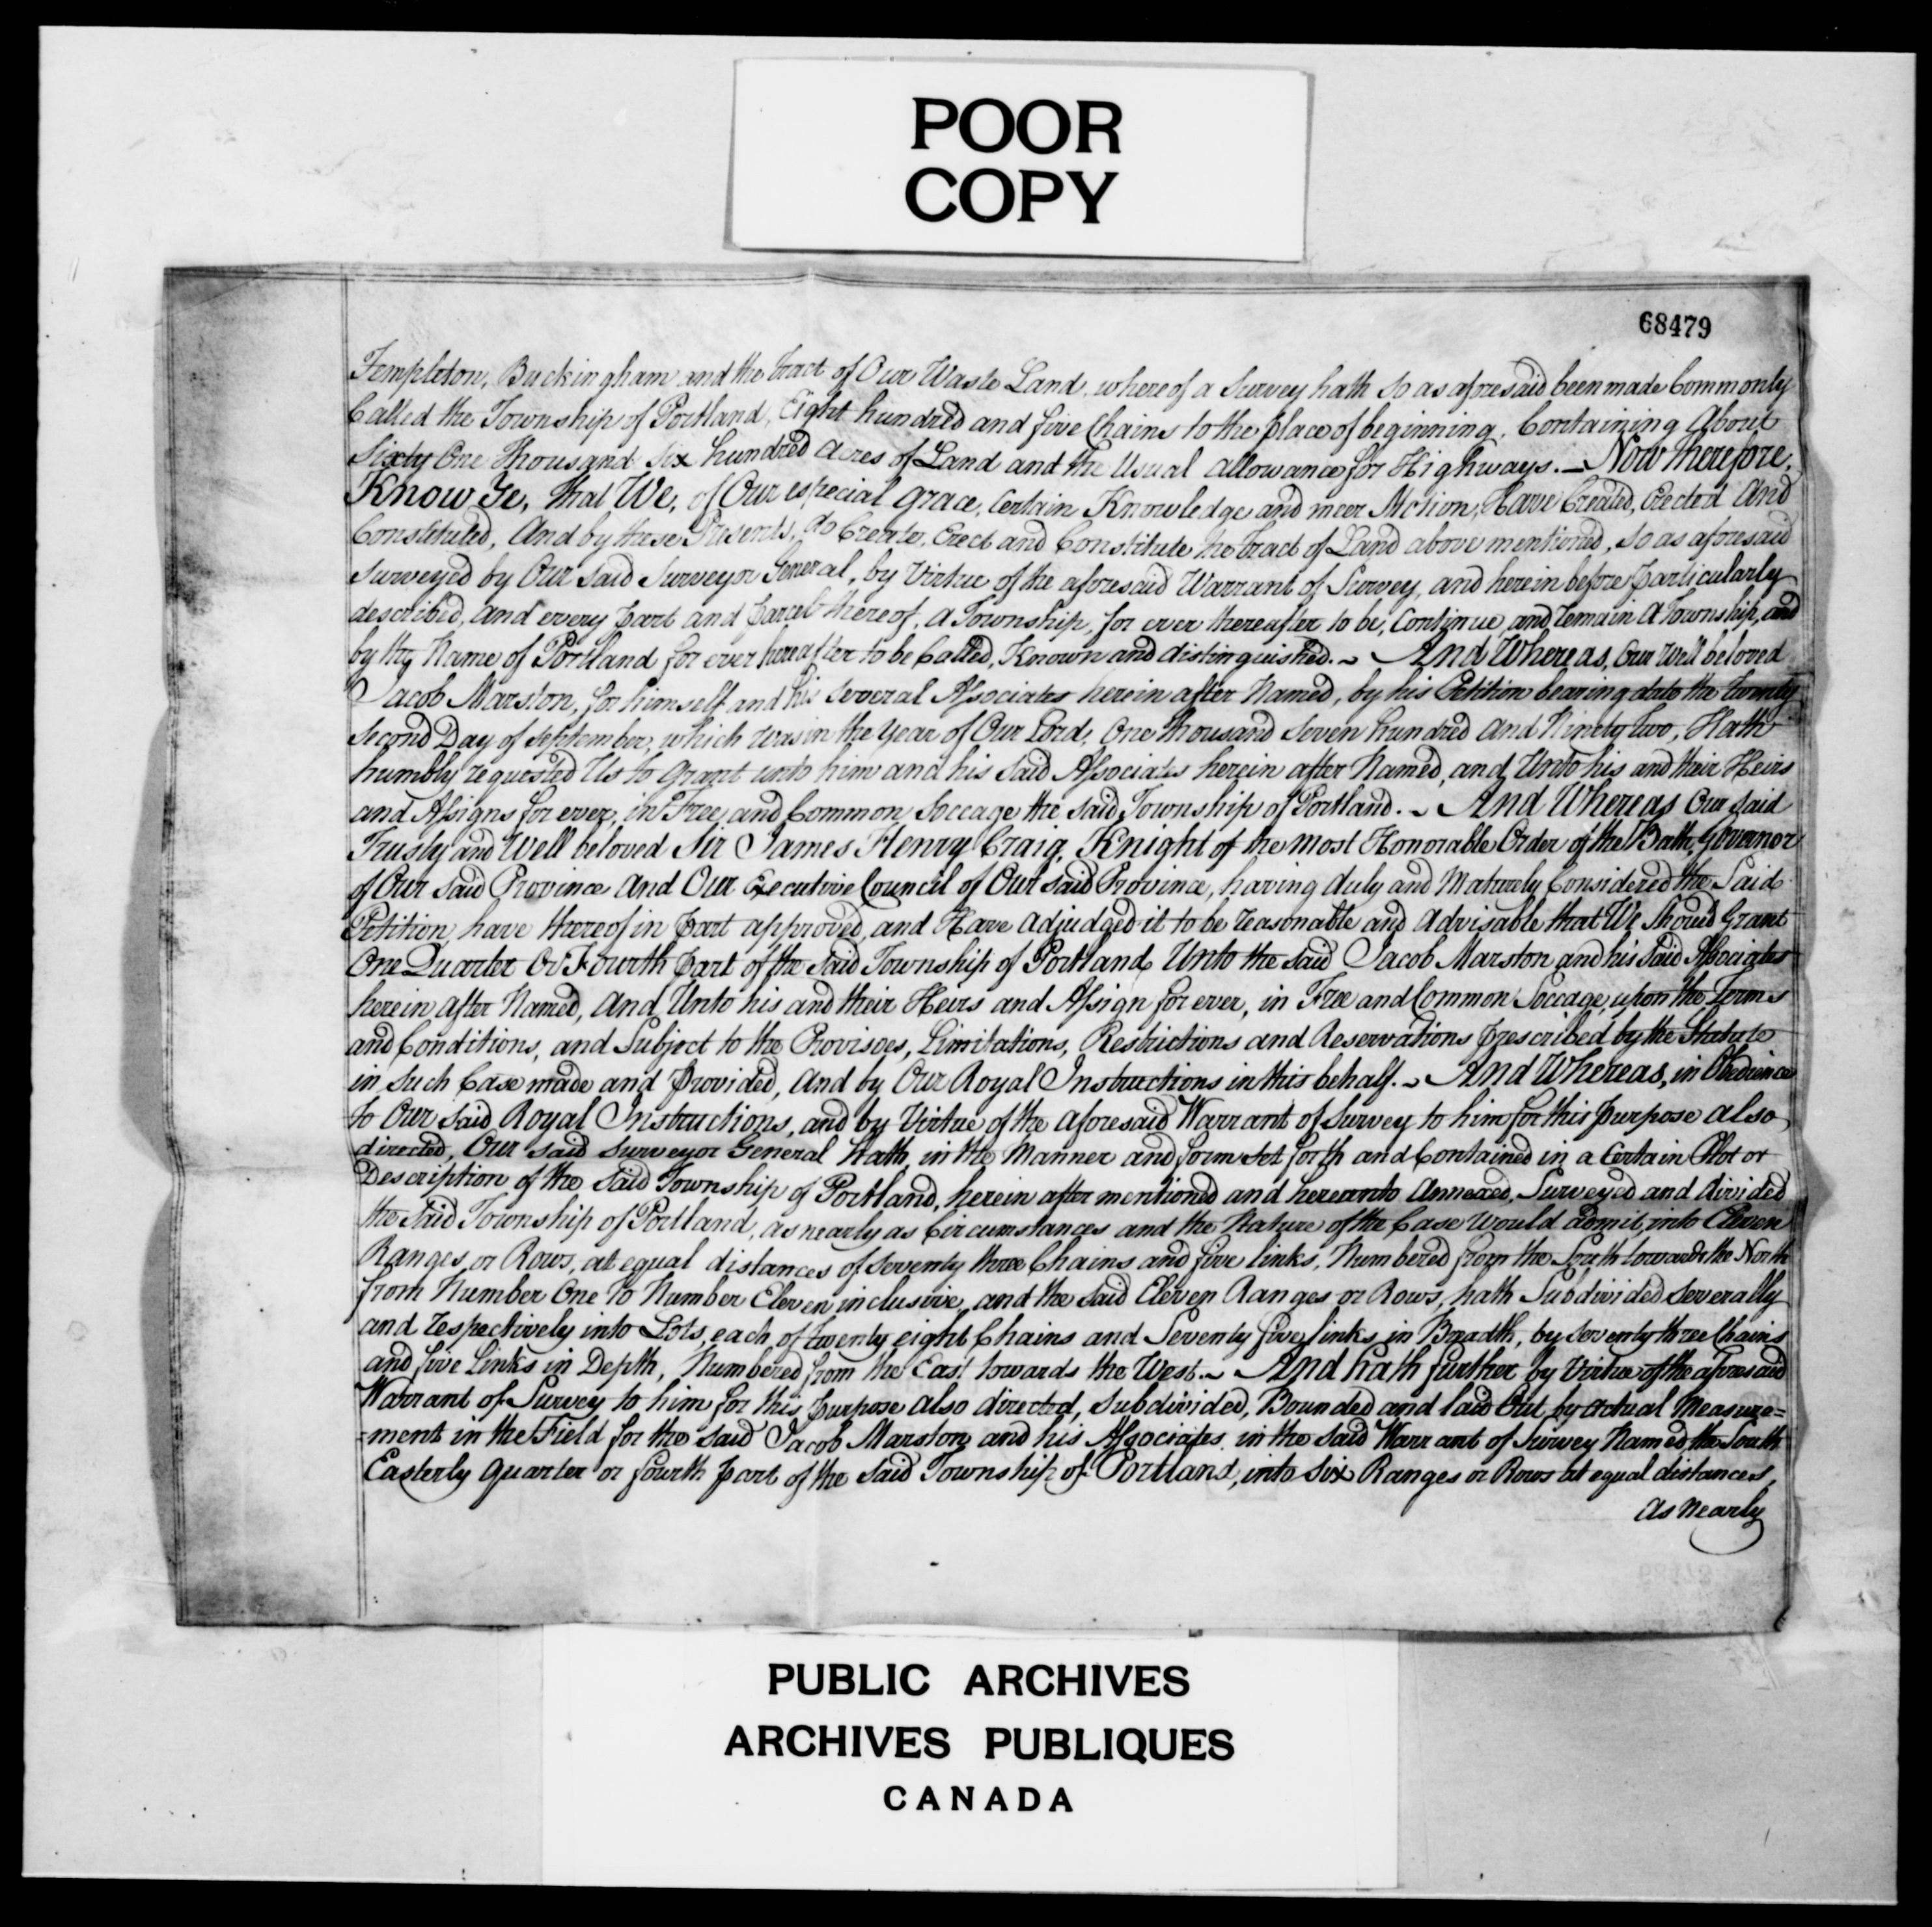 POOR
COPY
68479
Templeton, Buckingham and the tract of Our Waste Land, whereof a Survey hath so as aforesaid been made Commonly
Called the Township of Portland, Eight hundred and five Chains to the place of beginning, Containing About
Sixty One Thousand Six hundred Acres of Land and the Usual allowance for Highways. — Now Therefore,
Know Ye, that We, of Our especial Grace, Certain Knowledge and meer Motion, Have Created, Erected And
Constituted, And by these Presents, do Create, Erect and Constitute the tract of Land above mentioned, so as aforesaid
Surveyed by Our Said Surveyor General, by Virtue of the aforesaid Warrant of Survey, and herein before particularly
described, and every part and parcel thereof, a Township, for ever thereafter to be, Continue and remain a Township, and
by the Name of Portland for ever hereafter to be Called, Known and distinguished. ~ And Whereas, Our Well beloved
Jacob Marston, for himself and his several Associates herein after Named, by his Petition bearing date the twenty
Second Day of September, which was in the Year of Our Lord, One thousand seven hundred And Ninety two, Hath
humbly requested Us to Grant unto him and his said Associates herein after Named, and Unto his and their Heirs
and Assigns for ever, in Free and Common Soccage the said Township of Portland. ~ And Whereas Our said
Trusty and Well beloved Sir James Henry Craig, Knight of the most Honorable Order of the Bath, Governor
of Our said Province And Our Executive Council of Our said Province, having duly and Maturely Considered the Said
Petition, have thereof in part approved, and Have adjudged it to be reasonable and advisable that We Should Grant
One Quarter Or Fourth part of the said Township of Portland Unto the said Jacob Marston and his said Associates
herein after Named, And Unto his and their Heirs and Assign for ever, in Free and Common Soccage, upon the Terms
and Conditions, and Subject to the Provisoes, Limitations, Restrictions and Reservations prescribed by the Statute
in such Case made and provided, And by Our Royal Instructions in this behalf. ~ And Whereas, in Obedience
to Our said Royal Instructions, and by Virtue of the aforesaid Warrant of Survey to him for this purpose also
directed, Our said Surveyor General Hath, in the Manner and form Set forth and Contained in a Certain Plot or
Description of the said Township of Portland, herein after mentioned and hereunto Annexed, Surveyed and divided
the said Township of Portland, as nearly as Circumstances and the Nature of the Case would admit, into Eleven
Ranges, or Rows, at equal distances of Seventy three Chains and five links, Numbered from the South towards the North
from Number One To Number Eleven inclusive, and the said Eleven Ranges or Rows, hath Subdivided Severally
and respectively into Lots, each of twenty eight Chains and Seventy five links in Breadth, by Seventy three Chains
and five Links in Depth, Numbered from the East towards the West. ~ And hath further by Virtue of the aforesaid
Warrant of Survey to him for this purpose also directed, Subdivided, Bounded and laid Out by actual Measure=
=ment in the Field for the said Jacob Marston and his Associates in the said Warrant of Survey Named, the South
Easterly Quarter or fourth part of the said Township of Portland, into Six Ranges or Rows at equal distances,
as nearly
PUBLIC ARCHIVES
ARCHIVES PUBLIQUES
CANADA